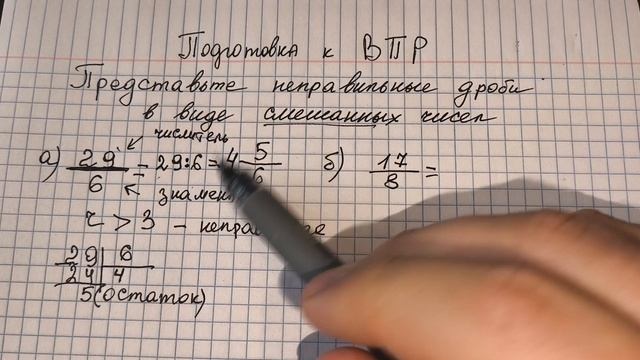 Подготовка к ВПР
Представьте неправильные дроби
в виде смешанных чисел
числитель
а) 29/6 = 29:6 = 4 5/6 б) 17/8 =
ч > З -
29 | 6
24 | 4
5 (остаток)